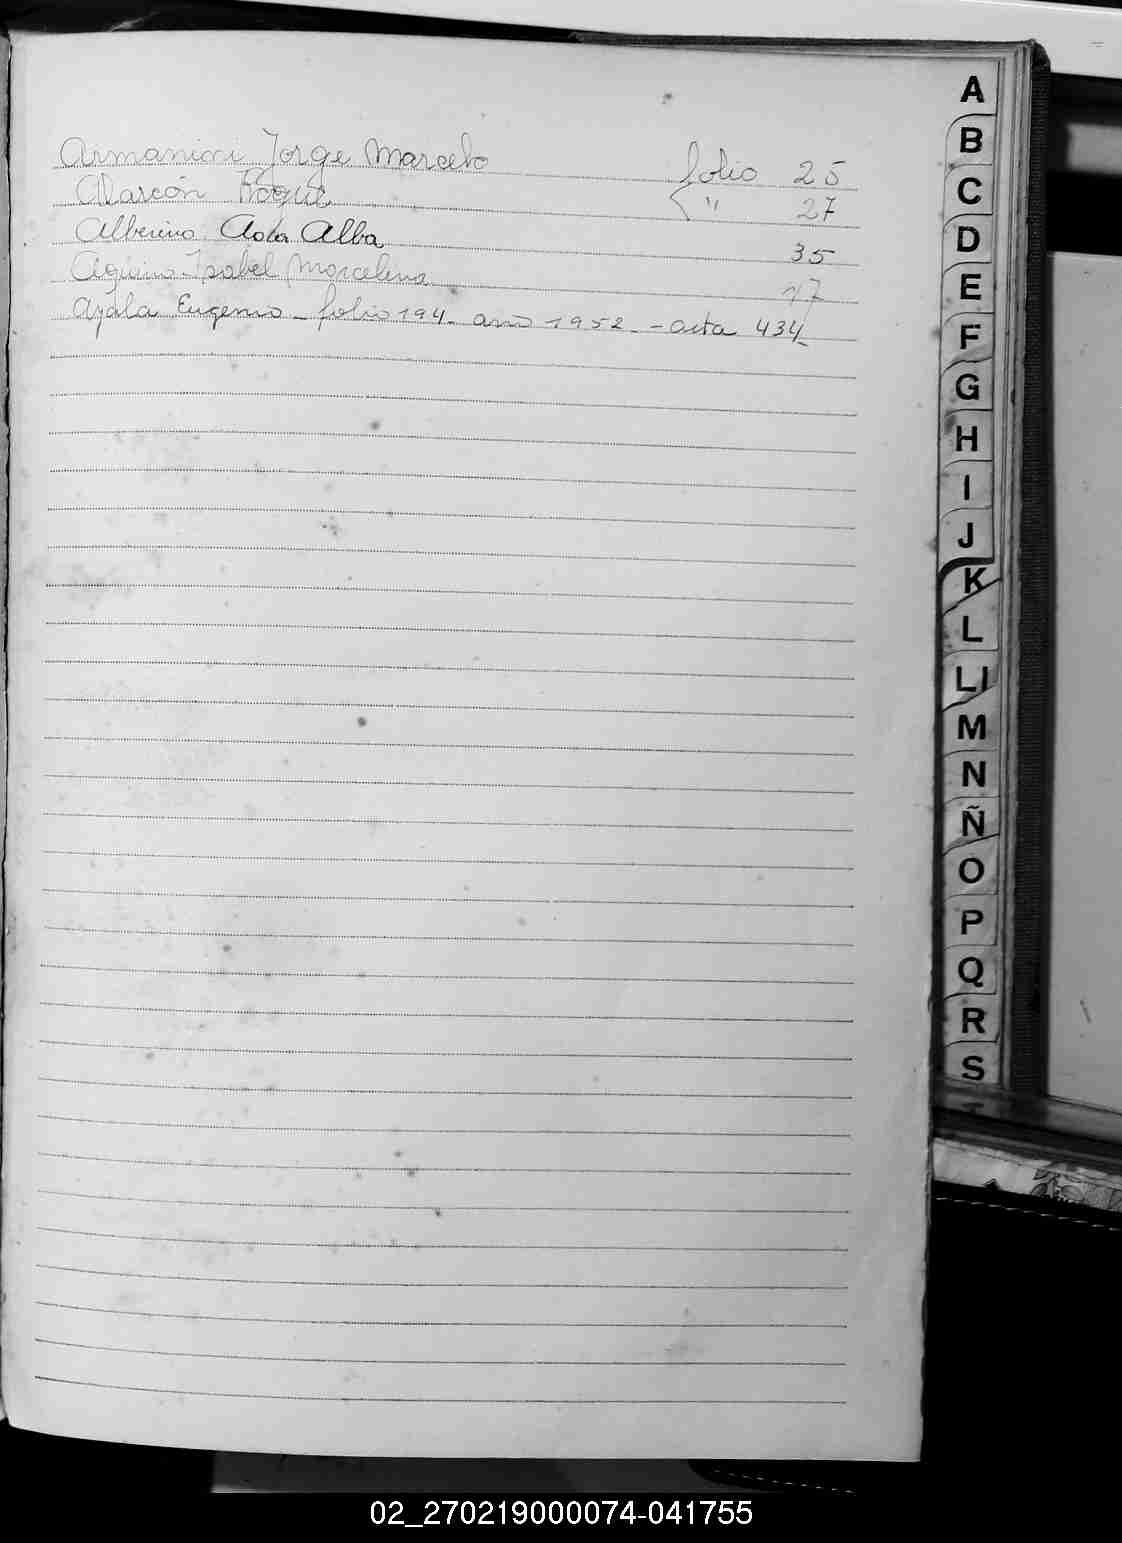 Armanini Jorge Marcelo folio 25
Alarcón Roque " 27
Alberino Alba 35
Aquino Isabel Marcelina 47
Ayala Eugenio - folio 194 - ano 1952 - acta 434
A
B
C
D
E
F
G
H
I
J
K
L
Ll
M
N
Ñ
O
P
Q
R
S
02_270219000074-041755